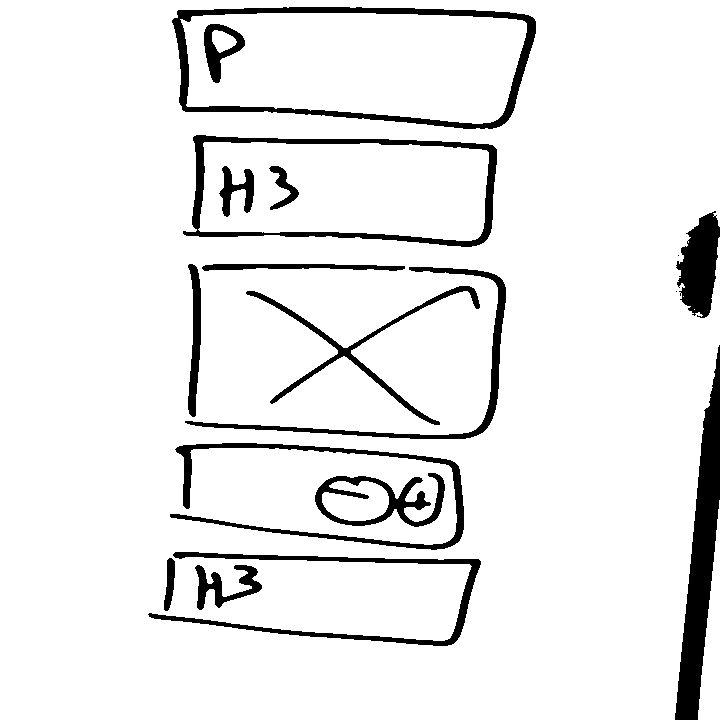 P
H3
- +
H3